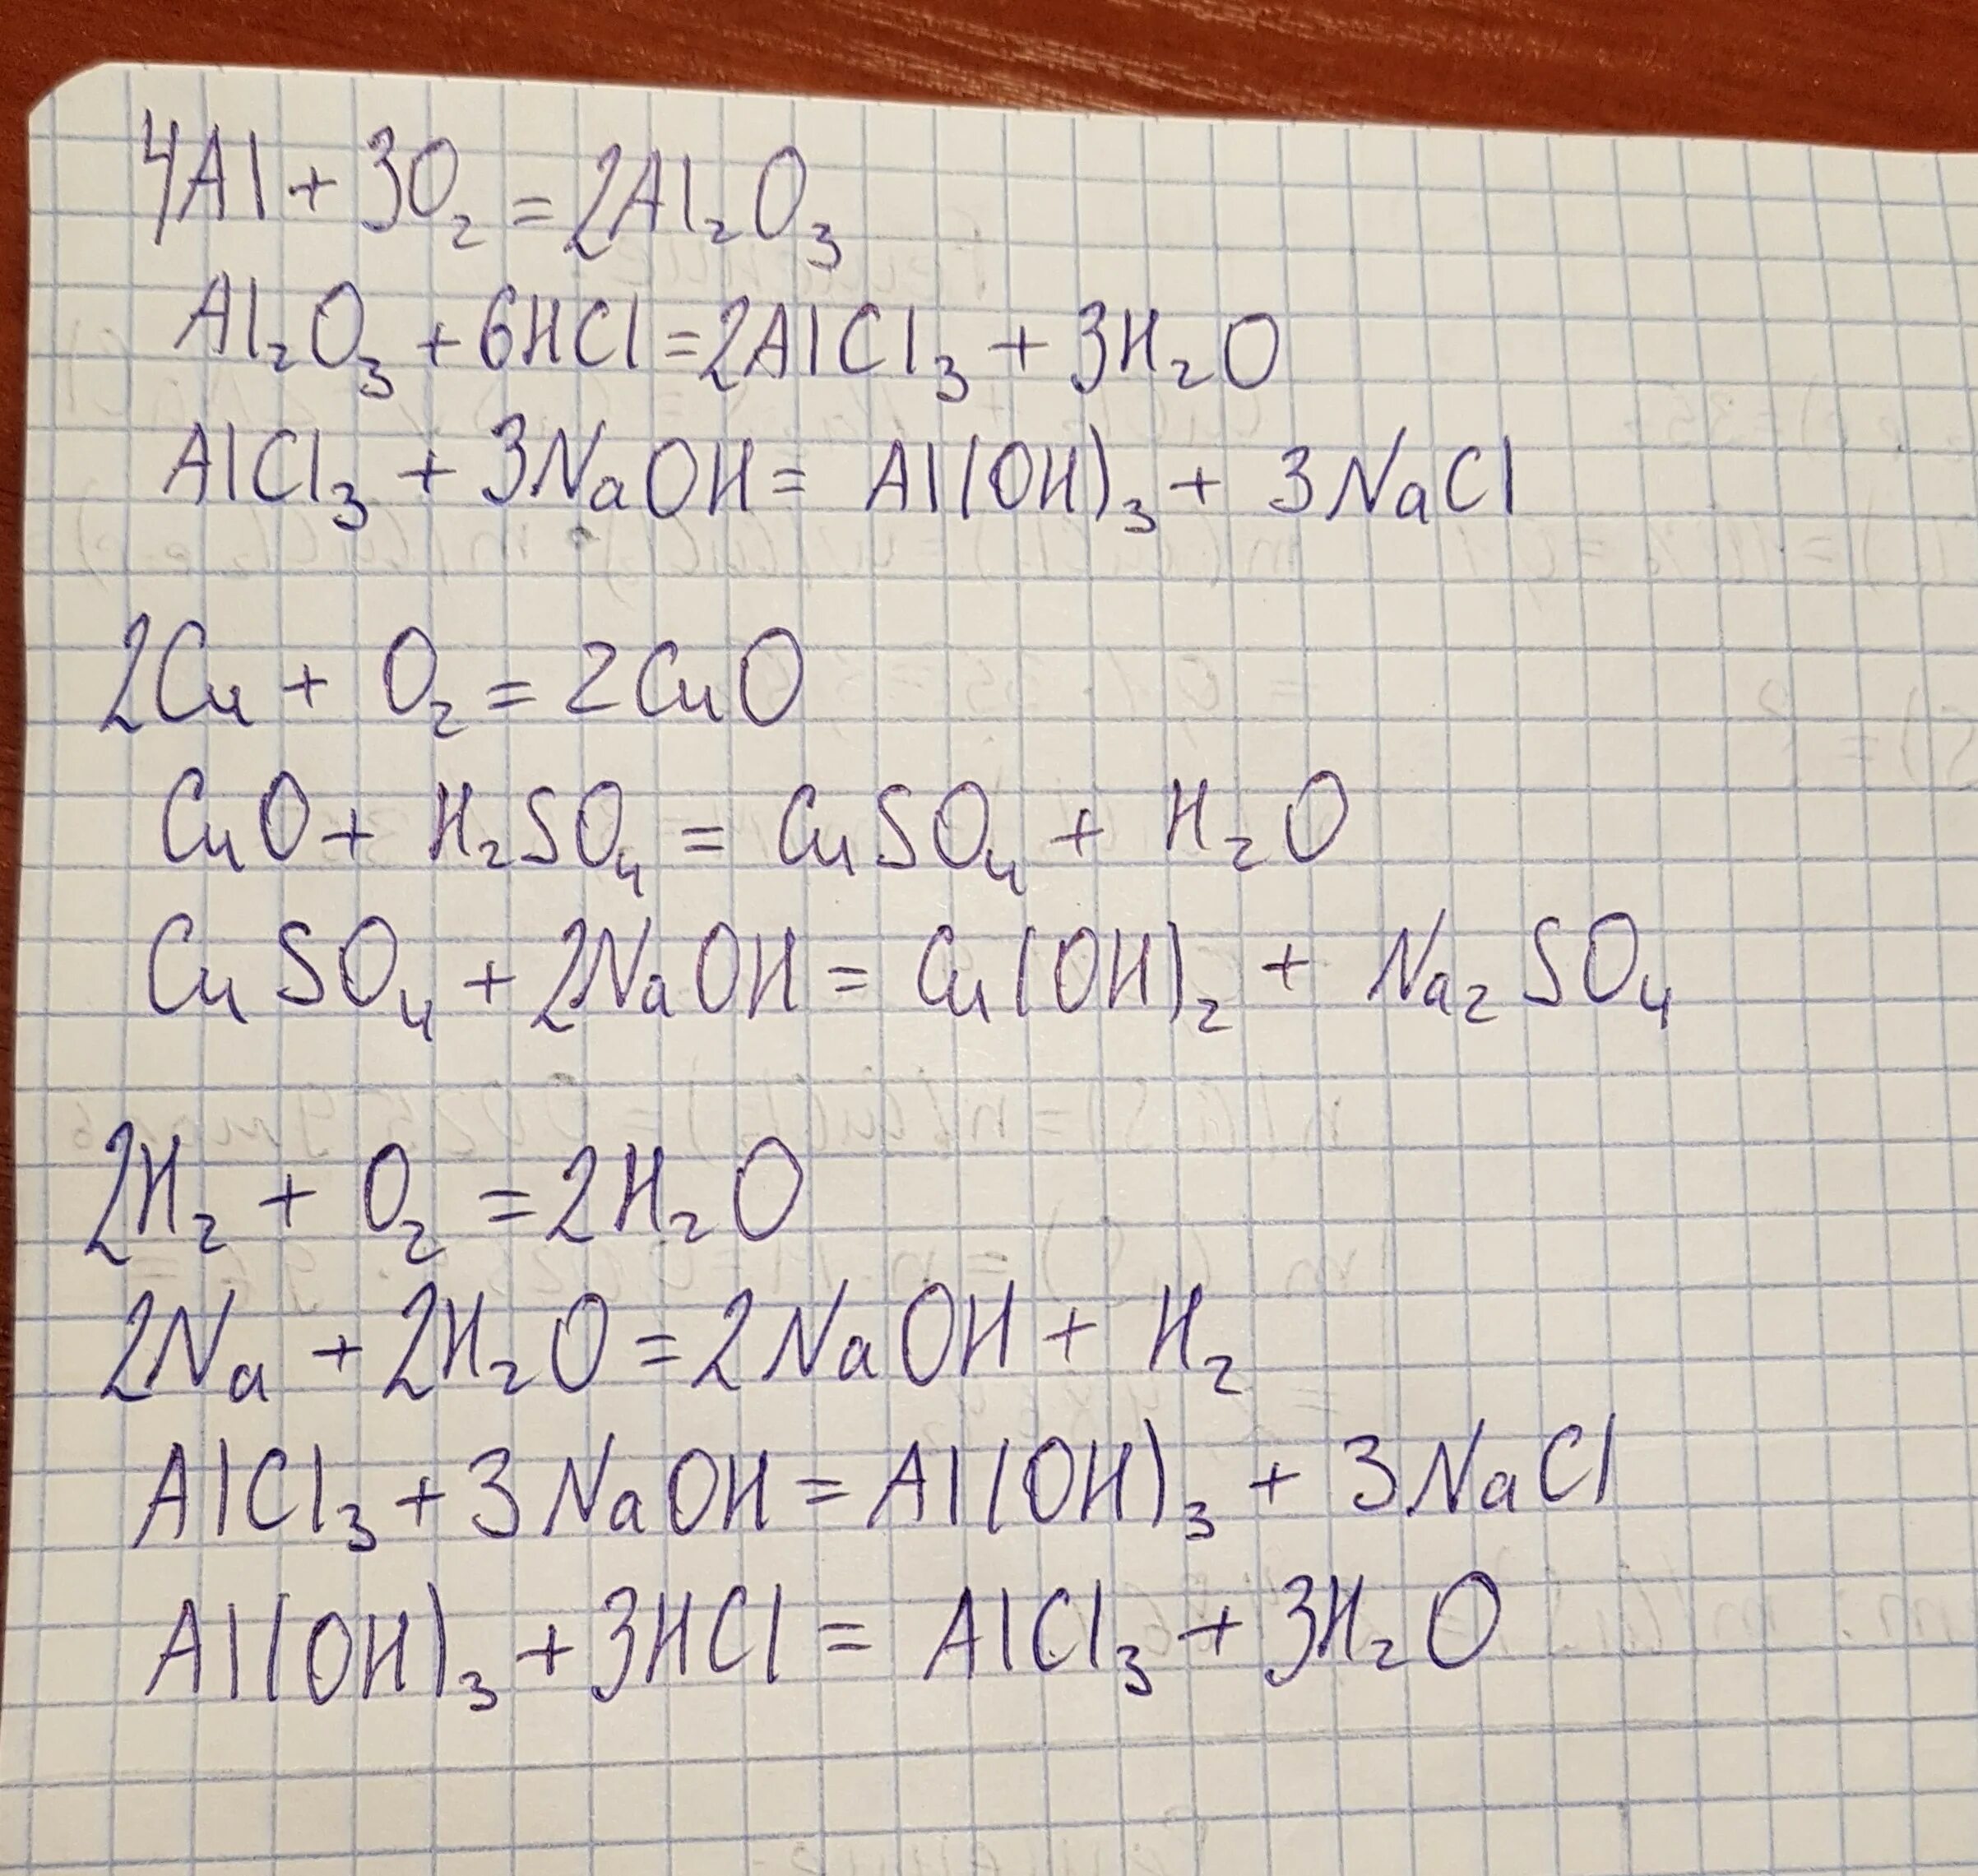 4Al + 3O₂ = 2Al₂O₃
Al₂O₃ + 6HCl = 2AlCl₃ + 3H₂O
AlCl₃ + 3NaOH = Al(OH)₃ + 3NaCl
2Cu + O₂ = 2CuO
CuO + H₂SO₄ = CuSO₄ + H₂O
CuSO₄ + 2NaOH = Cu(OH)₂ + Na₂SO₄
2H₂ + O₂ = 2H₂O
2Na + 2H₂O = 2NaOH + H₂
AlCl₃ + 3NaOH = Al(OH)₃ + 3NaCl
Al(OH)₃ + 3HCl = AlCl₃ + 3H₂O